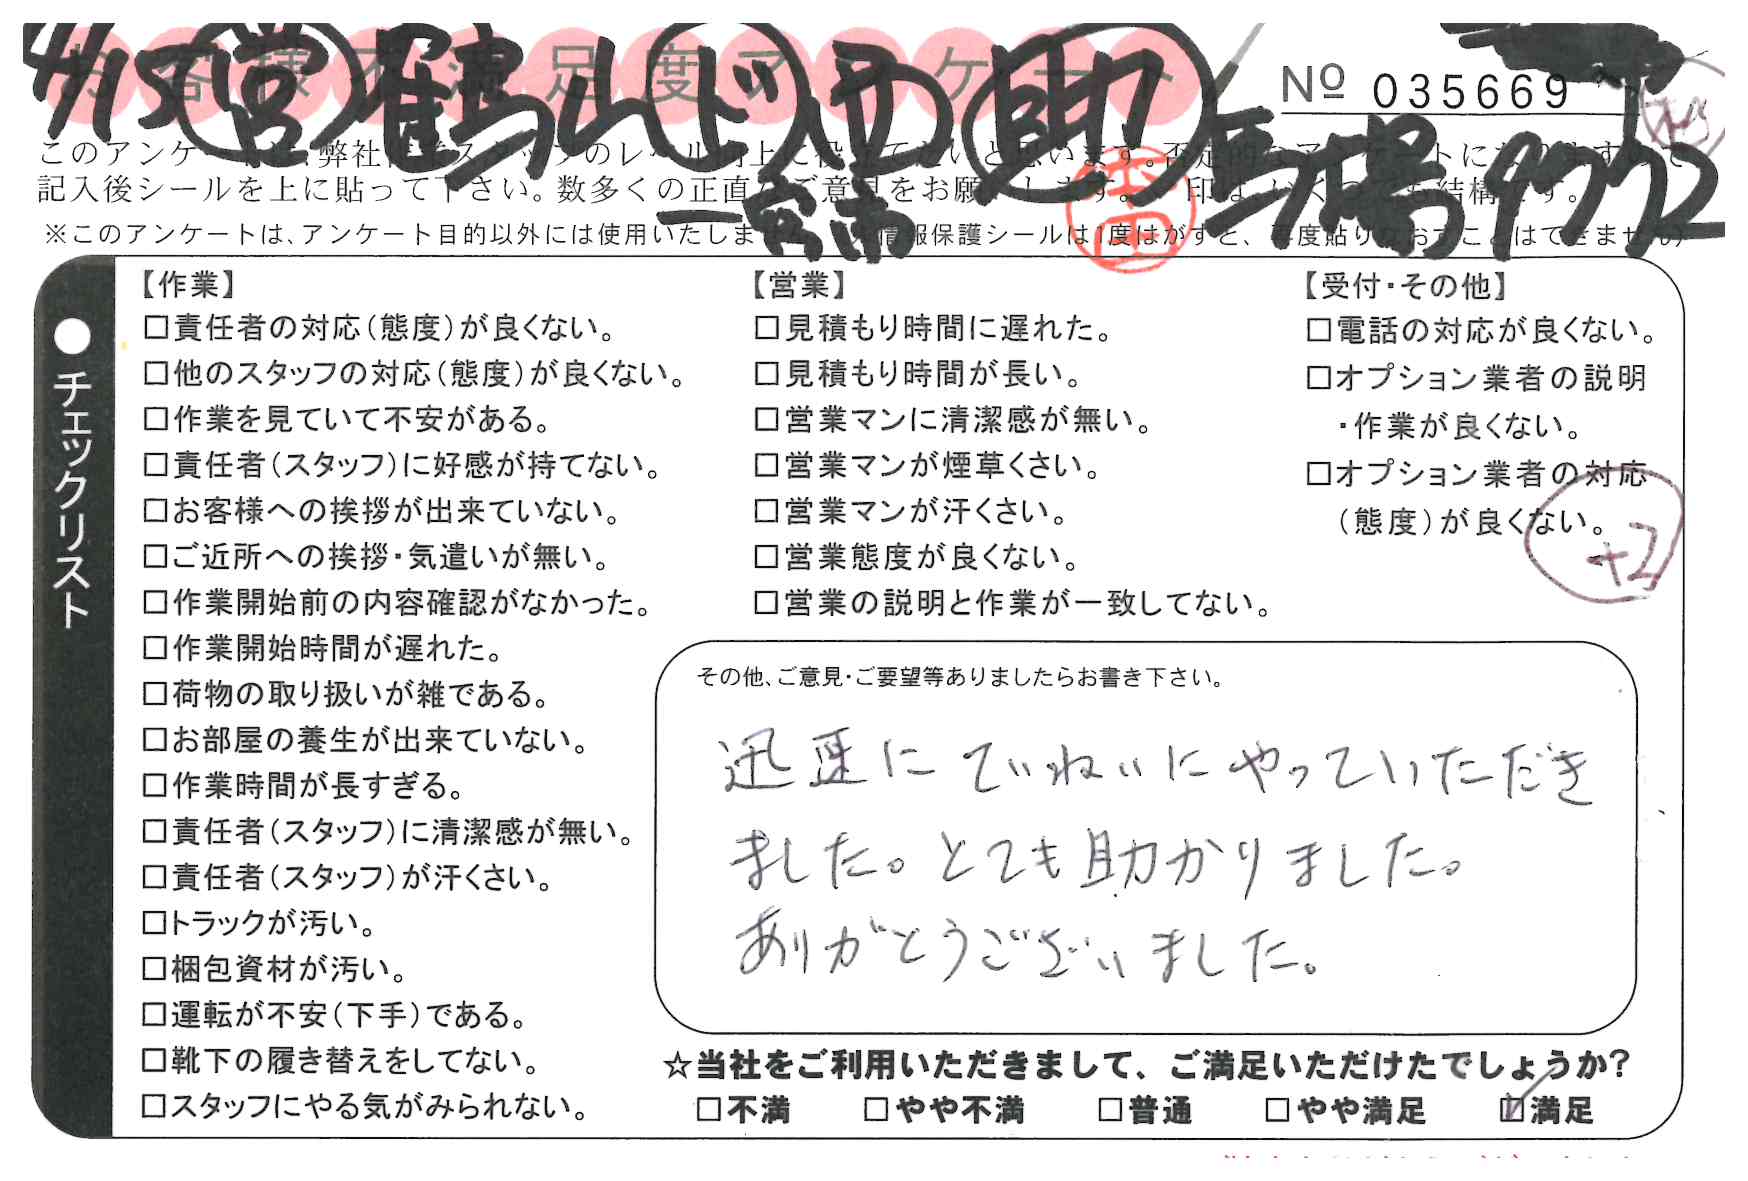 お客様不満足度アンケート
4/15 営 鶴山 ド 西 助 馬場 9772
一斎藤
No 035669
このアンケートは、弊社作業スタッフのレベル向上に役立てたいと思います。否定的なアンケートになりますので
記入後シールを上に貼って下さい。数多くの正直なご意見をお願いします。✓印は、いくつでも結構です。
※このアンケートは、アンケート目的以外には使用いたしません。 情報保護シールは1度はがすと、再度貼りなおすことはできません)
●チェックリスト
【作業】
□責任者の対応(態度)が良くない。
□他のスタッフの対応(態度)が良くない。
□作業を見ていて不安がある。
□責任者(スタッフ)に好感が持てない。
□お客様への挨拶が出来ていない。
□ご近所への挨拶・気遣いが無い。
□作業開始前の内容確認がなかった。
□作業開始時間が遅れた。
□荷物の取り扱いが雑である。
□お部屋の養生が出来ていない。
□作業時間が長すぎる。
□責任者(スタッフ)に清潔感が無い。
□責任者(スタッフ)が汗くさい。
□トラックが汚い。
□梱包資材が汚い。
□運転が不安(下手)である。
□靴下の履き替えをしてない。
□スタッフにやる気がみられない。
【営業】
□見積もり時間に遅れた。
□見積もり時間が長い。
□営業マンに清潔感が無い。
□営業マンが煙草くさい。
□営業マンが汗くさい。
□営業態度が良くない。
□営業の説明と作業が一致してない。
【受付・その他】
□電話の対応が良くない。
□オプション業者の説明
・作業が良くない。
□オプション業者の対応
(態度)が良くない。
+2
その他、ご意見・ご要望等ありましたらお書き下さい。
迅速にていねいにやっていただき
ました。とても助かりました。
ありがとうございました。
☆当社をご利用いただきまして、ご満足いただけたでしょうか?
□不満 □やや不満 □普通 □やや満足 ☑満足